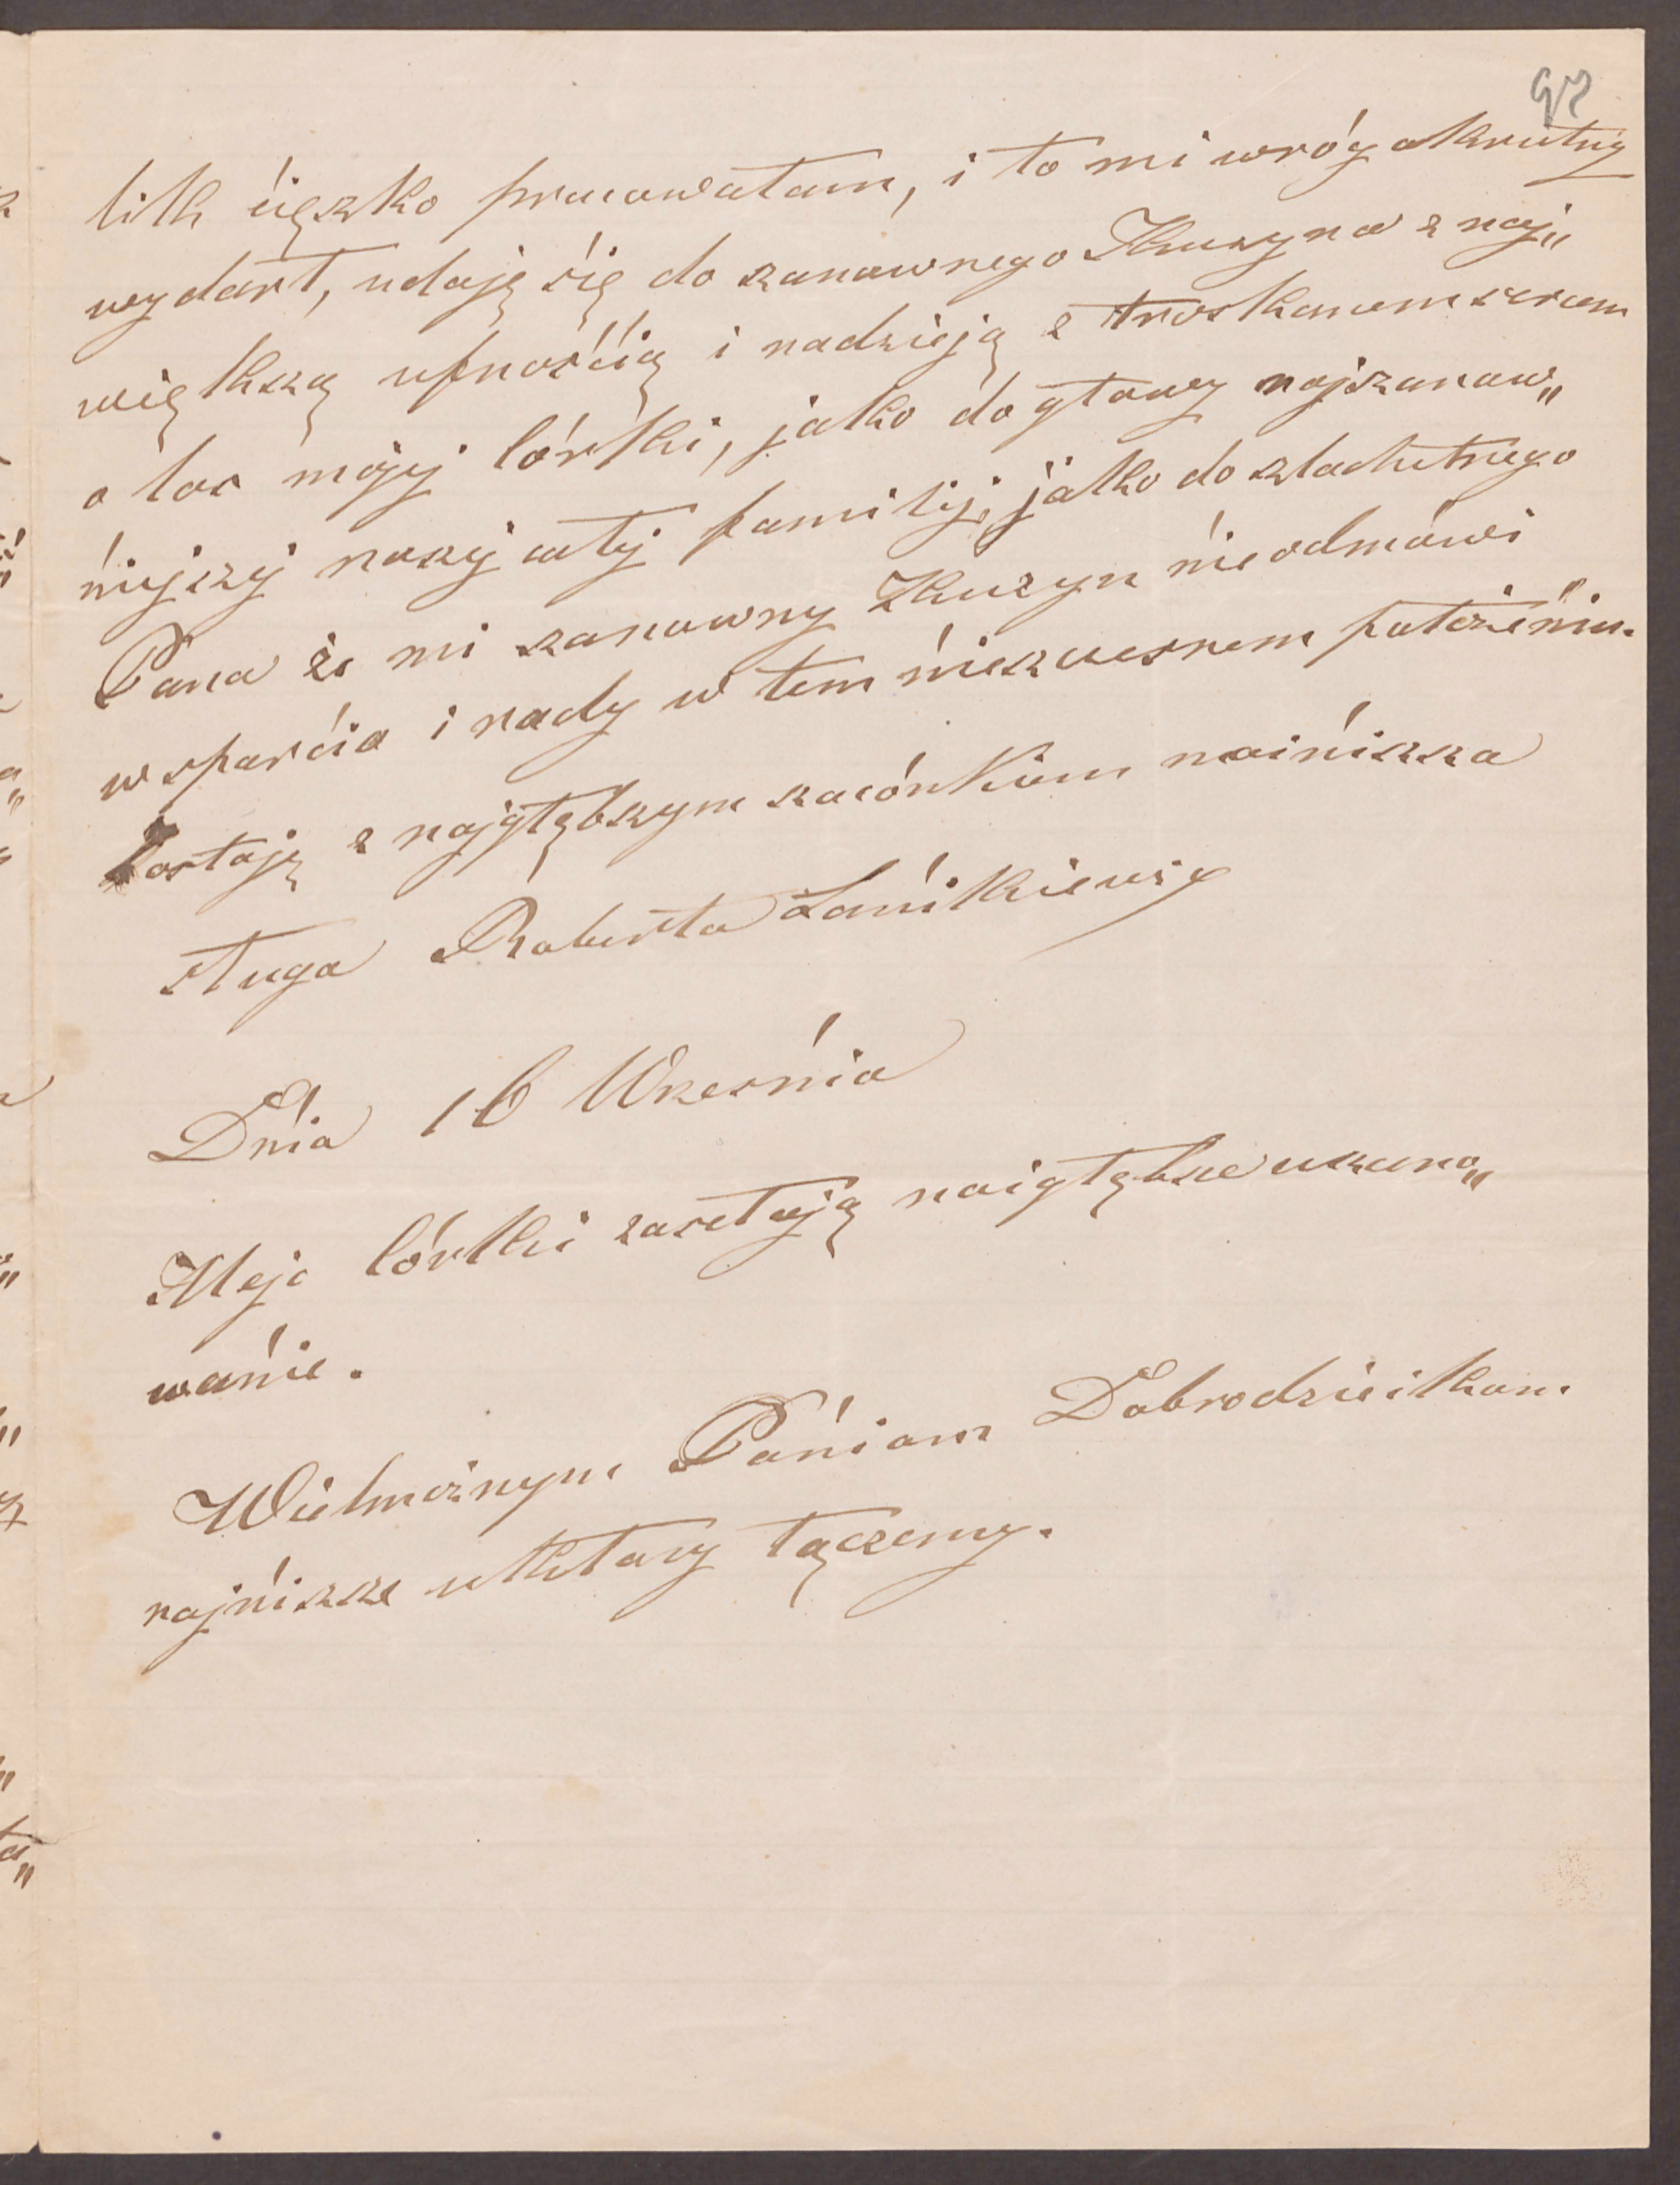 97
lik ćięzko pracowałam, i to mi wróg okrutny
wydarł, udaję śię do zanownego Kuzyna z naj„
większą ufnośćią i nadzieją z troskanem sercem
o los mojej córki, jako do głowy najzanow„
ńiejszej naszej całej familij, jako do zlachetnego
Pana że mi zanowny Kuzyn ńie odmówi
wsparćia i rady w tem ńieszczesnem położeńiu.
Zostaję z najgłębszym szacónkiem naińiższa
sługa Roberta
Dńia 16 Wrześńia
Moje córki zasełają naigłębsze uszano„
wańie.
Wielmożnym Pańiom Dobrodzieikom
najńiższe ukłony łączemy.